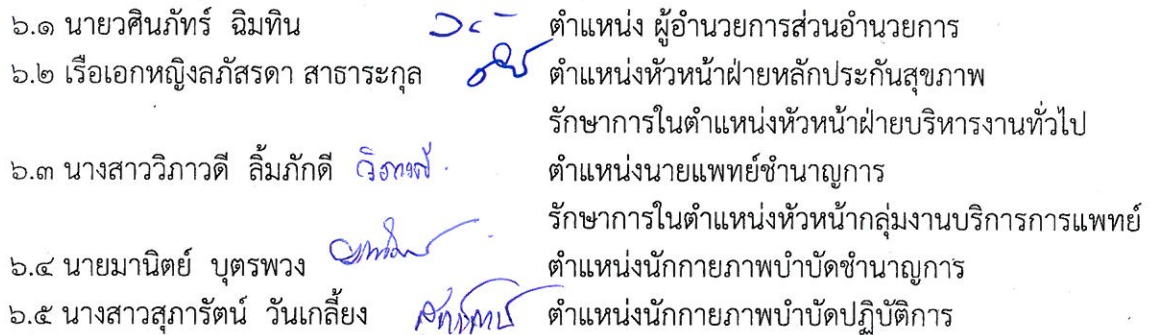 ๖.๑ นายวศินภัทร์ ฉิมทิน ตำแหน่ง ผู้อำนวยการส่วนอำนวยการ
๖.๒ เรือเอกหญิงลภัสรดา สาธาระกุล ตำแหน่งหัวหน้าฝ่ายหลักประกันสุขภาพ
รักษาการในตำแหน่งหัวหน้าฝ่ายบริหารงานทั่วไป
๖.๓ นางสาววิภาวดี ลิ้มภักดี วิภาวดี ตำแหน่งนายแพทย์ชำนาญการ
รักษาการในตำแหน่งหัวหน้ากลุ่มงานบริการการแพทย์
๖.๔ นายมานิตย์ บุตรพวง ตำแหน่งนักกายภาพบำบัดชำนาญการ
๖.๕ นางสาวสุภารัตน์ วันเกลี้ยง ตำแหน่งนักกายภาพบำบัดปฏิบัติการ